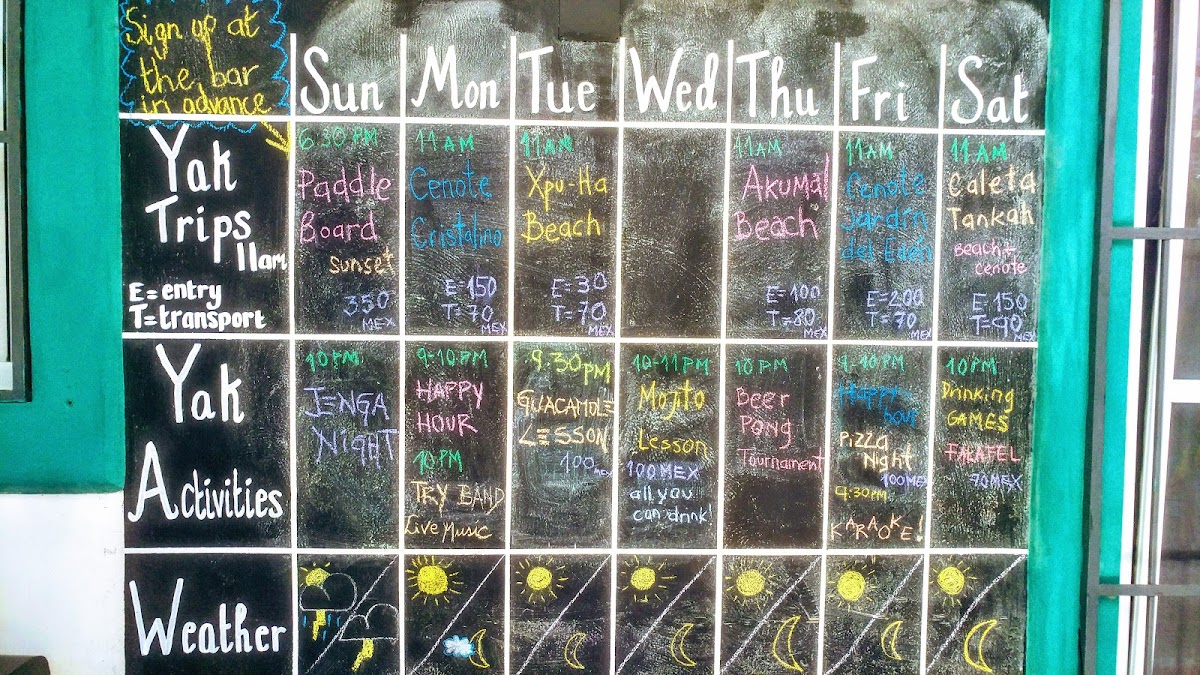 Sign up at
the bar
in advance
Sun Mon Tue Wed Thu Fri Sat
Yak
Trips
11am
E = entry
T = transport
6:30 PM
Paddle
Board
sunset
350
MEX
11 AM
Cenote
Cristalino
E=150
T=70
MEX
11AM
Xpu-Ha
Beach
E=30
T=70
MEX
11AM
Akumal
Beach
E=100
T=80
MEX
11AM
Cenote
Jardin
del Eden
E=200
T=70
MEX
11 AM
Caleta
Tankah
Beach +
cenote
E=150
T=90
MEX
Yak
Activities
10PM
JENGA
NIGHT
9-10PM
HAPPY
HOUR
10PM
TRY BAND
Live Music
9.30PM
GUACAMOLE
LESSON
100 MEX
10-11PM
Mojito
Lesson
100MEX
all you
can drink!
10PM
Beer
Pong
Tournament
9-10PM
Happy
hour
Pizza
Night
100MEX
9:30PM
KARAOKE!
10PM
Drinking
GAMES
FALAFEL
90MEX
Weather